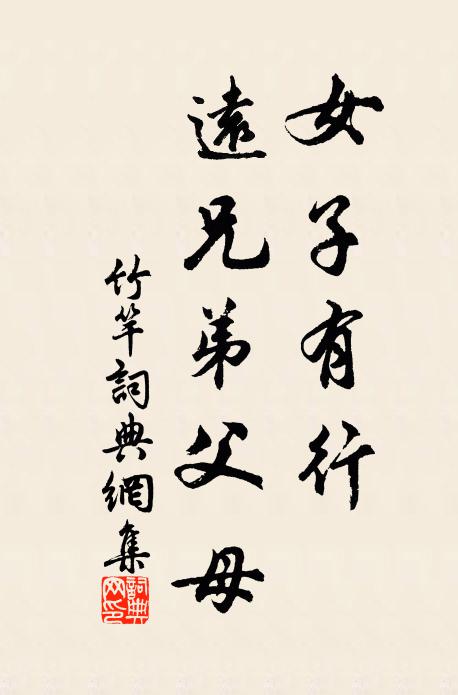 女子有行
遠兄弟父母
竹竿詞典網集
詞典
网印